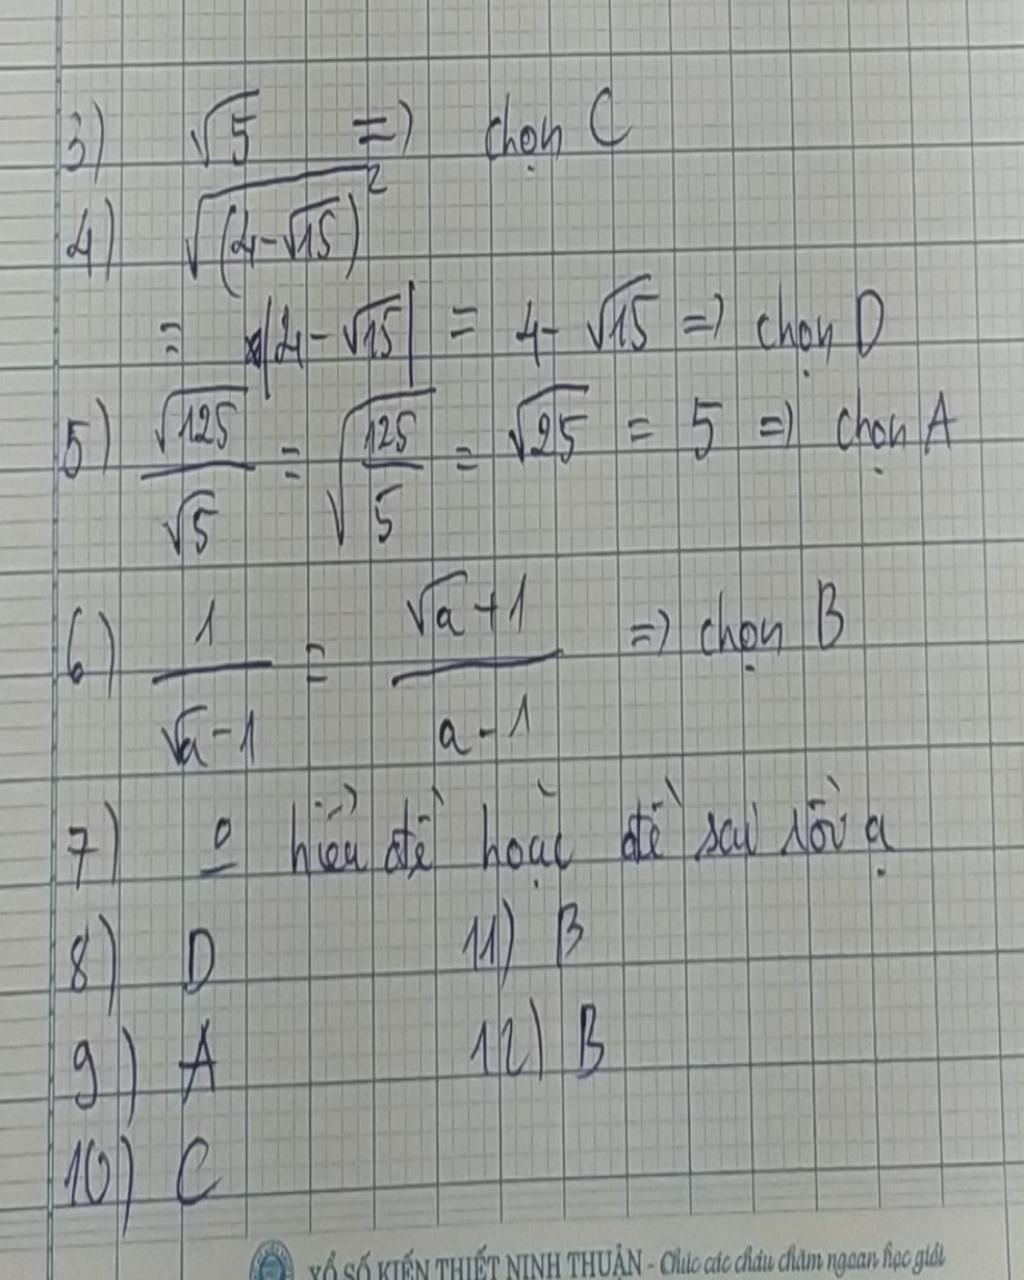 3) √5 => chọn C
4) √(4-√15)²
= |4-√15| = 4-√15 => chọn D
5) √125/√5 = √(125/5) = √25 = 5 => chọn A
6) 1/(√a-1) = (√a+1)/(a-1) => chọn B
7) hiểu đề hoặc đề sai rồi ạ
8) D 11) B
9) A 12) B
10) C
XỔ SỐ KIẾN THIẾT NINH THUẬN - Chúc các cháu chăm ngoan học giỏi